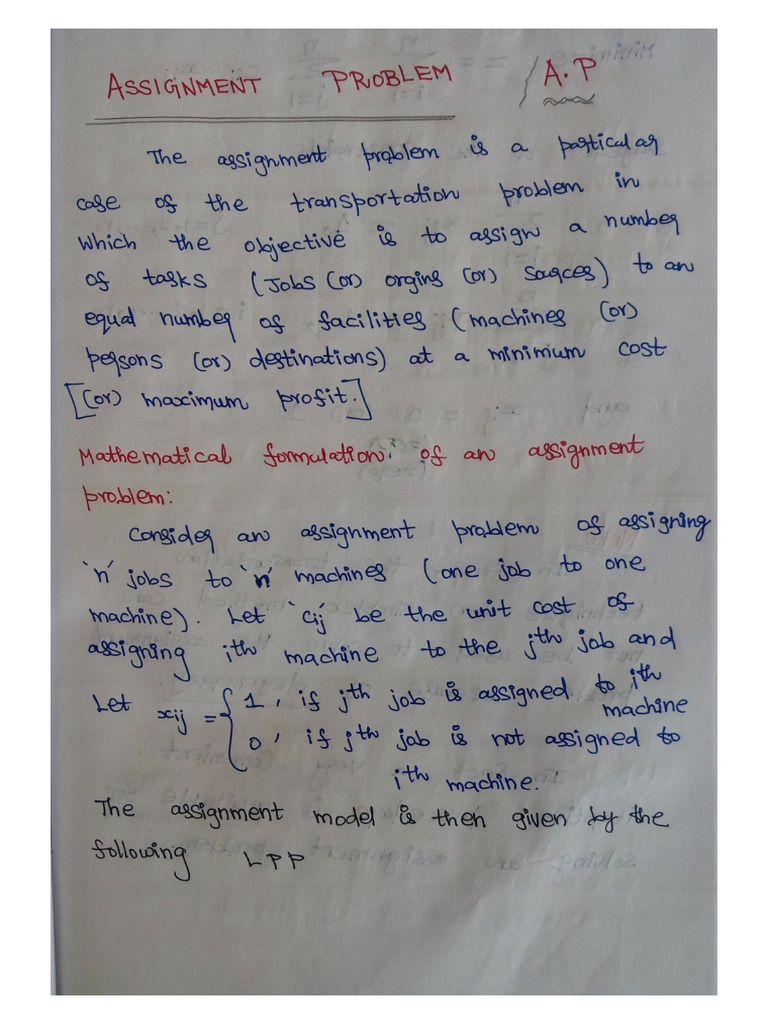 ASSIGNMENT PROBLEM / A.P
The assignment problem is a particular
case of the transportation problem in
which the objective is to assign a number
of tasks (Jobs (or) orgins (or) sources) to an
equal number of facilities (machines (or)
persons (or) destinations) at a minimum cost
[(or) maximum profit.]
Mathematical formulation of an assignment
problem:
Consider an assignment problem of assigning
'n' jobs to 'n' machines (one job to one
machine). Let 'cij' be the unit cost of
assigning ith machine to the jth job and
Let xij = { 1, if jth job is assigned to ith
machine
0, if jth job is not assigned to
ith machine.
The assignment model is then given by the
following LPP